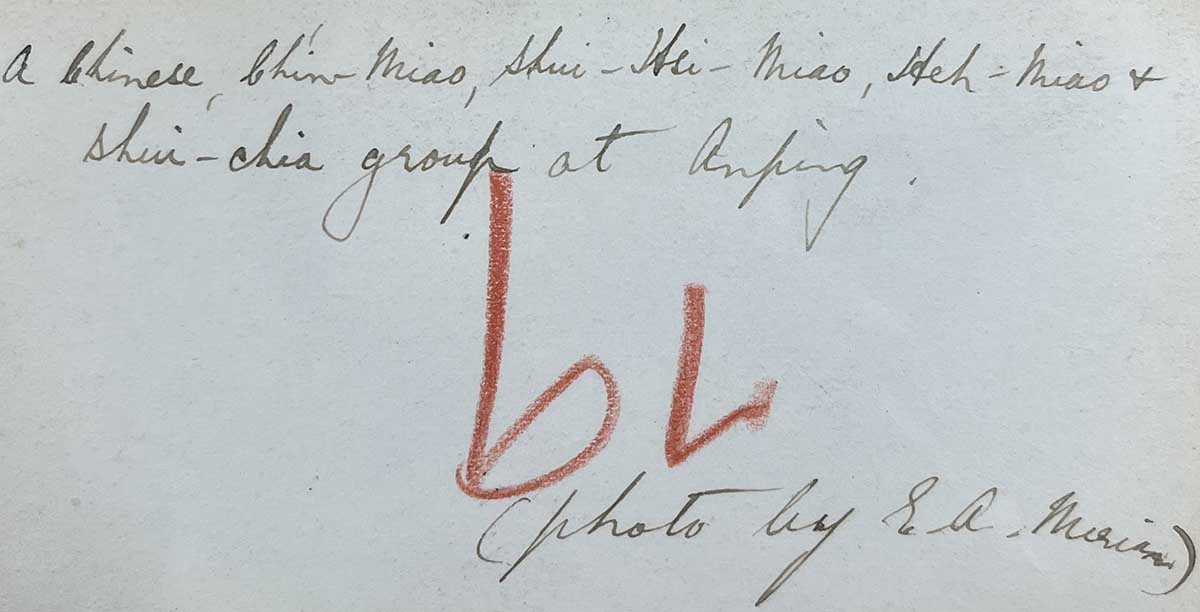 A Chinese, Chin-Miao, Shui-Hsi-Miao, Heh-Miao &
Shui-chia group at Anping.
(photo by E A. Merian)